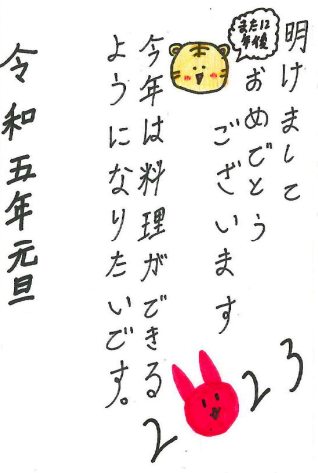 明けまして
おめでとう
ございます
また12
年後
今年は料理ができる
ようになりたいです。
令和五年元旦
2023